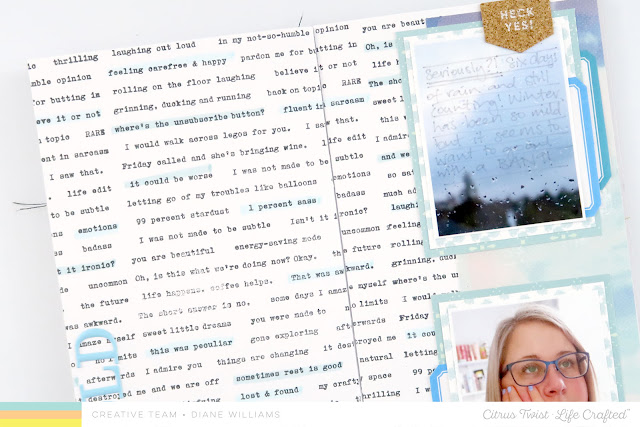 HECK
YES!
is thrilling laughing out loud in my not-so-humble opinion you are beaut
mble opinion feeling carefree & happy pardon me for butting in Oh, is
for butting in rolling on the floor laughing believe it or not
eve it or not grinning, ducking and running back on topic RARE The sho
n topic RARE where's the unsubscribe button? fluent in sarcasm sweet l
ent in sarcasm I would walk across legos for you. I saw that.
I saw that. Friday called and she's bringing wine. life edit I admir
life edit it could be worse I was not made to be subtle and we
to be subtle letting go of my troubles like balloons emotions so sat
ns emotions 99 percent stardust 1 percent sass badass mush ad
s badass I was not made to be subtle Isn't it ironic? laugh
t it ironic? you are beautiful energy-saving mode uncommon feeling
uncommon Oh, is this what we're doing now? Okay. the future rolling
the future life happens. coffee helps. That was awkward. grinning, duc
was awkward. The short answer is no. some days I amaze myself where's the u
I amaze myself sweet little dreams you were made to no limits I would
no limits this was peculiar gone exploring afterwards Friday
afterwards I admire you things are changing it destroyed me it could
destroyed me and we are off sometimes rest is good natural letting
lost & found my crafty space 99 p
Seriously?! Six days
of rain and still
counting! Winter
has been so mild
CREATIVE TEAM • DIANE WILLIAMS
Citrus Twist Life Crafted